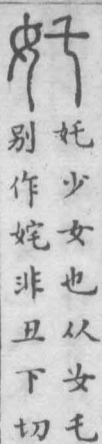 奼
奼少女也从女乇
别作姹非丑下切